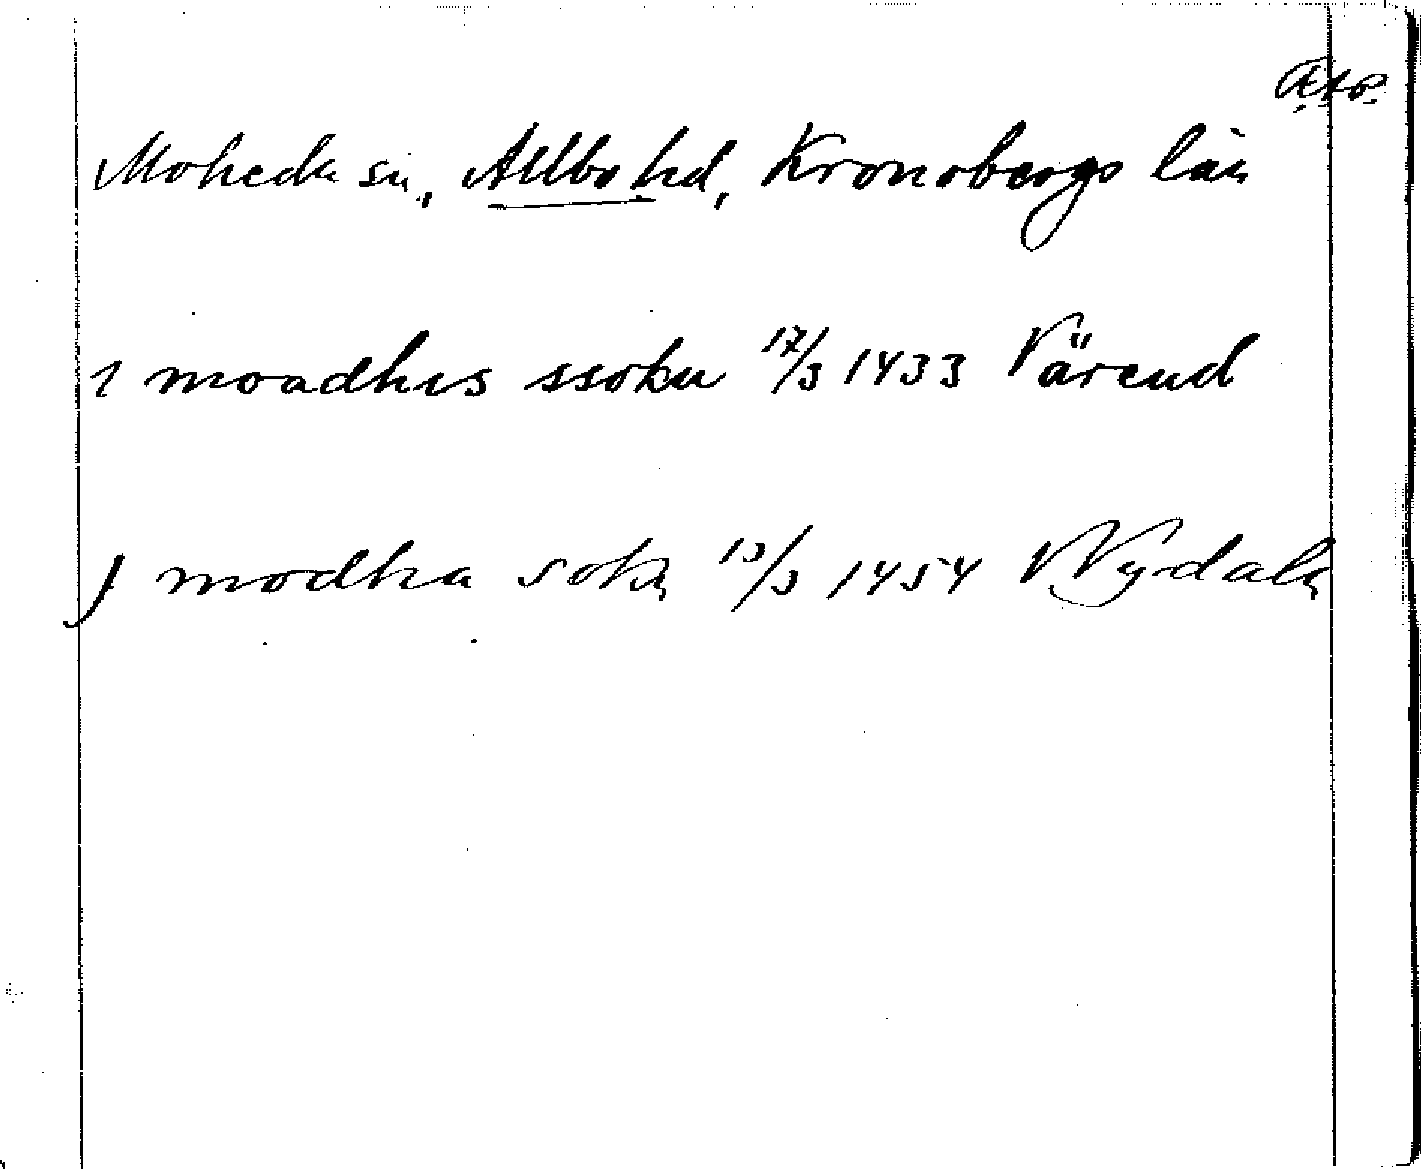 Äso.
Moheda sn., Allbo hd, Kronobergs län
i moadhus ssokn 17/3 1433 Värend
J modha sokn 13/3 1454 Nydala